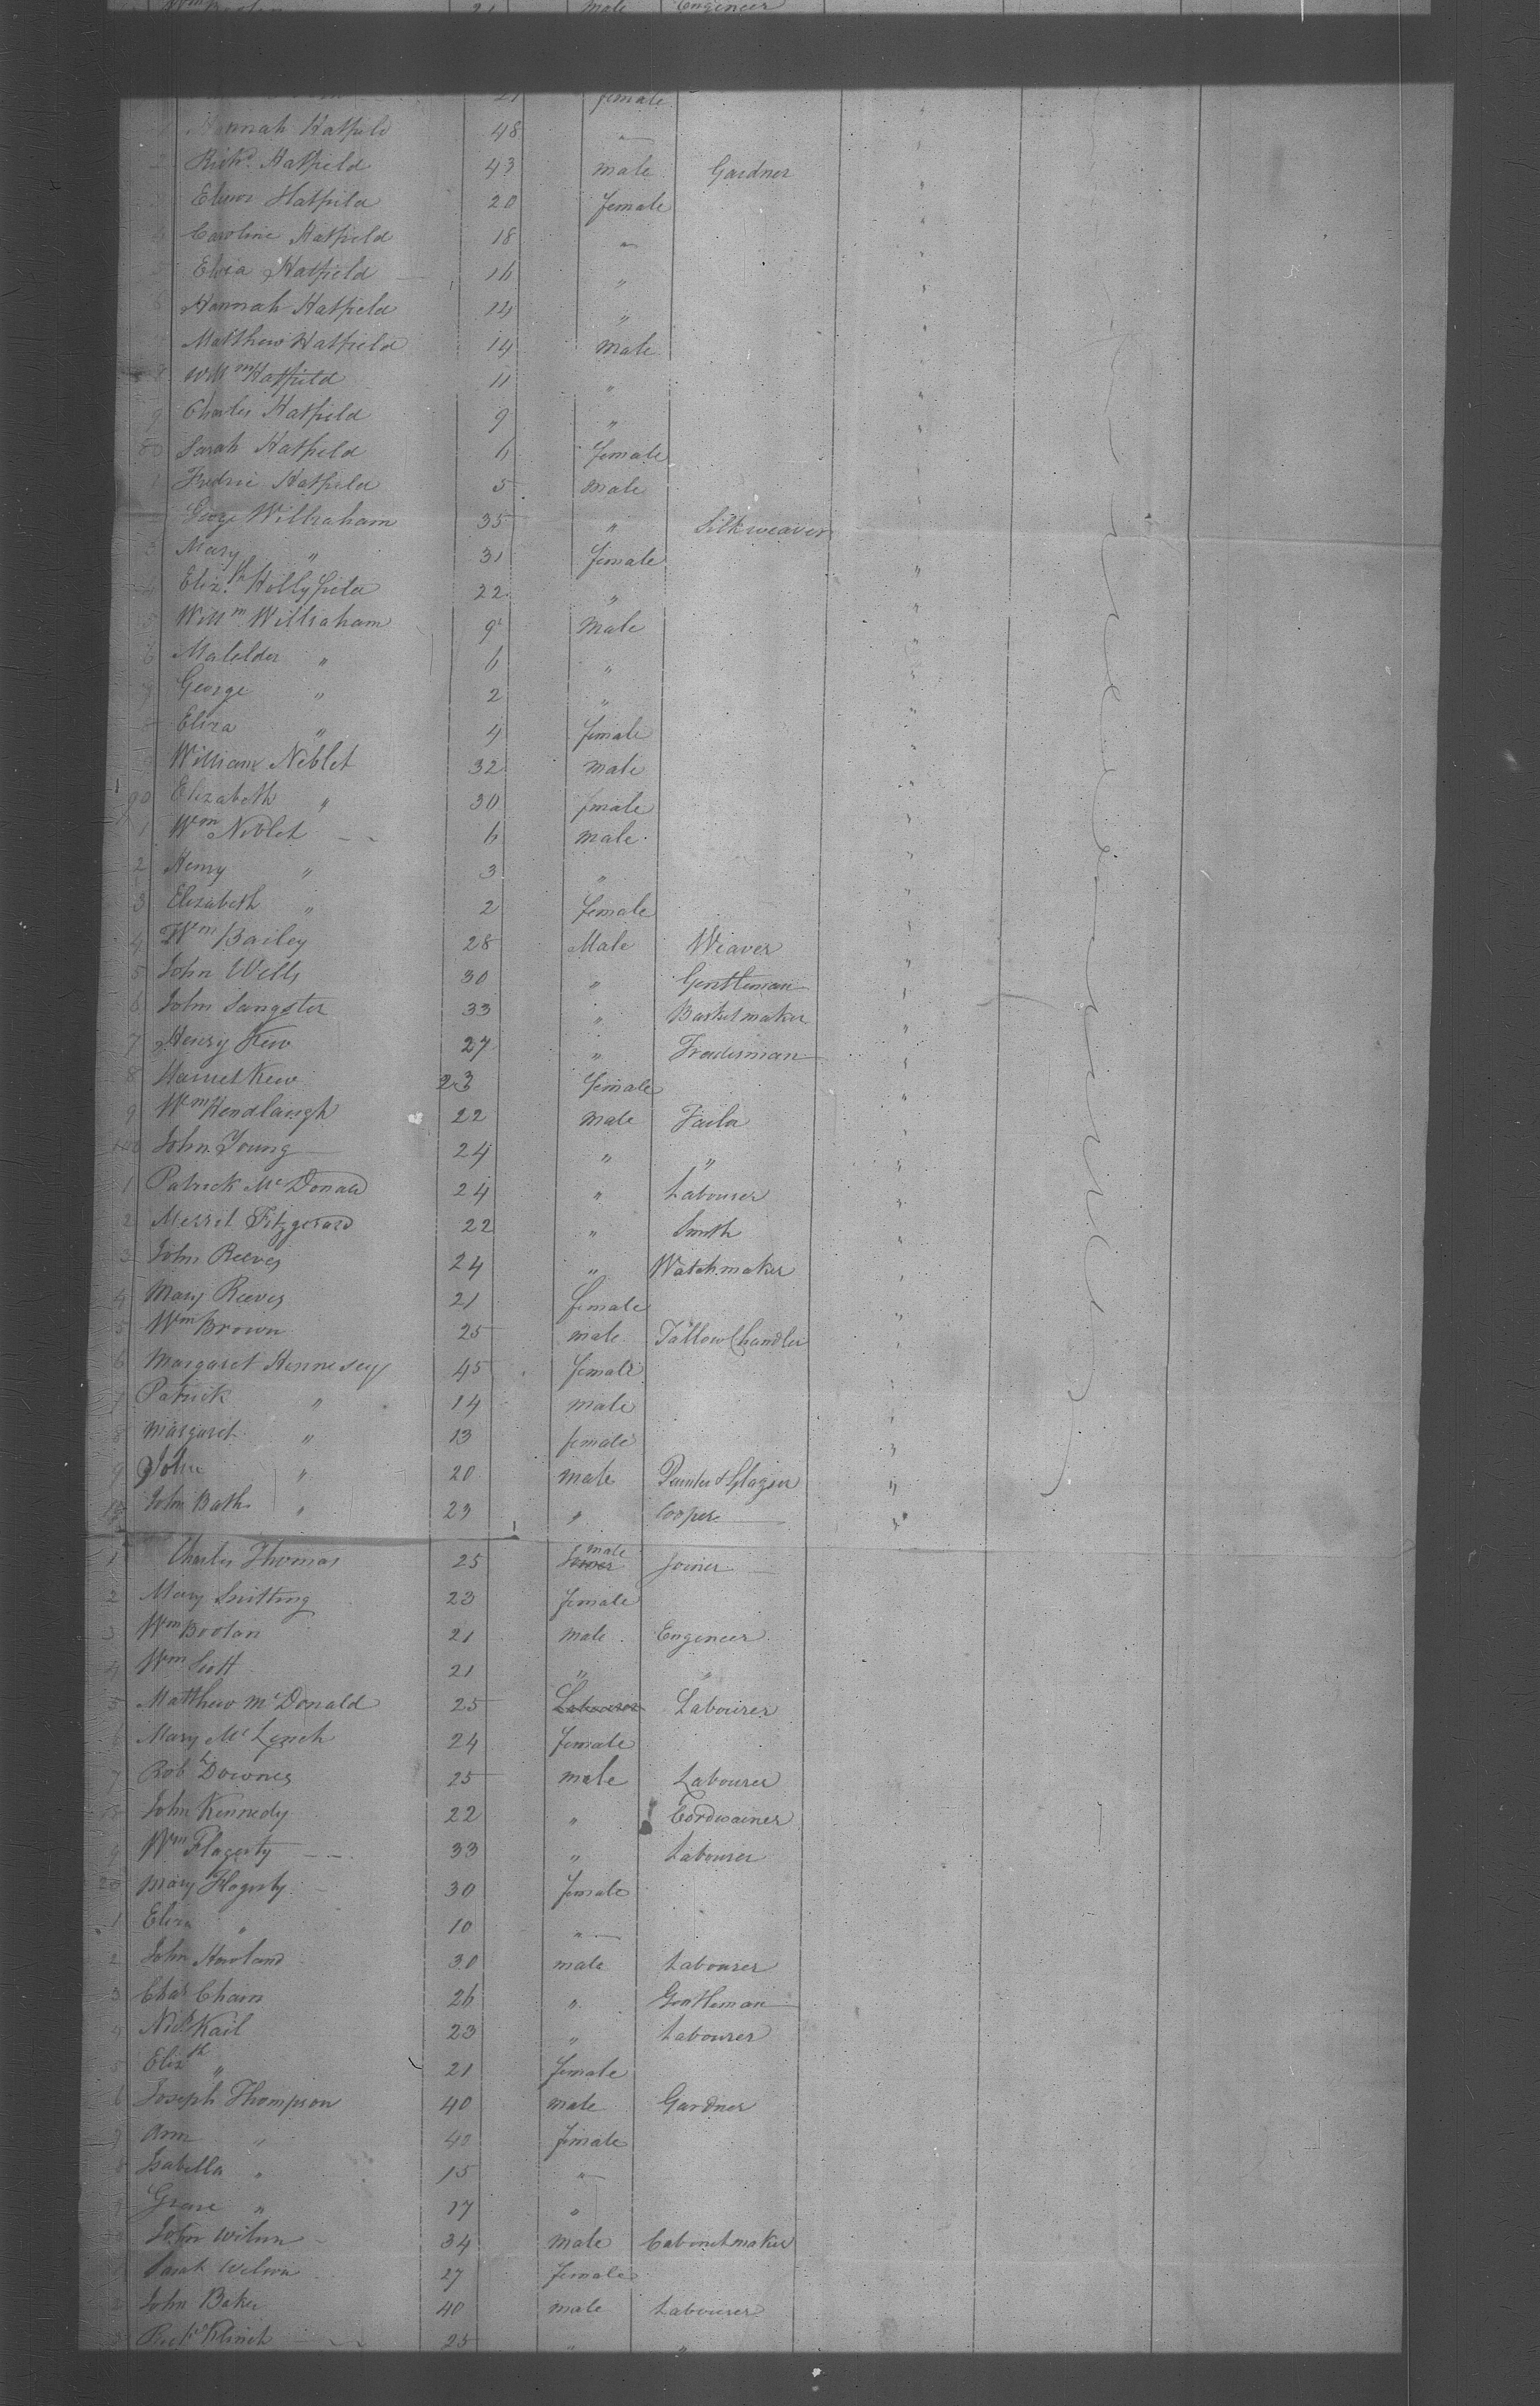 21 male Engineer
21 female
Hannah Hatfield 48 "
2 Richd. Hatfield 43 male Gardner
3 Elinor Hatfield 20 female
4 Caroline Hatfield 18 "
5 Eliza Hatfield 16 "
6 Hannah Hatfield 14 "
7 Matthew Hatfield 14 male
8 Willm Hatfield 11 "
9 Charles Hatfield 9 "
80 Sarah Hatfield 6 female
1 Fredric Hatfield 5 male
2 George Wilbraham 35 " Silk weaver
3 Mary " 31 female
4 Elizth. Hollyfield 22 "
5 Willm Wilbraham 9 Male
6 " 6 "
7 George " 2 "
8 Eliza " 4 female
9 William Neblet 32 male
90 Elizabeth " 30 female
1 Wm Neblet 6 male
2 Henry " 3 "
3 Elizabeth " 2 female
4 Wm Bailey 28 Male Weaver
5 John Wells 30 " Gentleman
6 John Sangster 33 " Basketmaker
7 Henry Kew 27 " Tradesman
8 Harriet Kew 23 female
9 Wm 22 male
100 John Young 24 " "
1 Patrick McDonald 24 " Labourer
2 Fitzgerard 22 " Smith
3 John Reeves 24 " Watchmaker
4 Mary Reeves 21 female
5 Wm Brown 25 male Tallow Chandler
6 Margaret Hennesey 45 female
7 Patrick " 14 male
8 Margaret " 13 female
9 John " 20 male Painter & Glazier
110 John Bath " 23 " Cooper
1 Charles Thomas 25 male Joiner
2 Mary 23 female
3 Wm Boolan 21 male Engineer
4 Wm Scott 21 " "
5 Matthew McDonald 25 Labourer Labourer
6 Mary McLench 24 female
7 Robt Downes 25 male Labourer
8 John Kennedy 22 " Cordwainer
9 Wm Flagerty 33 " Labourer
20 Mary Flagerty 30 female
1 Eliza " 10 "
2 John Howland 30 male Labourer
3 Chas Cham 26 " Gentleman
4 Nichs Kail 23 " Labourer
5 Elizth " 21 female
6 Joseph Thompson 40 male Gardner
7 Ann " 40 female
8 Isabella " 15 "
9 Grace " 17 "
John Wilson 34 male Cabinetmaker
Sarah Wilson 27 female
2 John Baker 40 male Labourer
25 " "